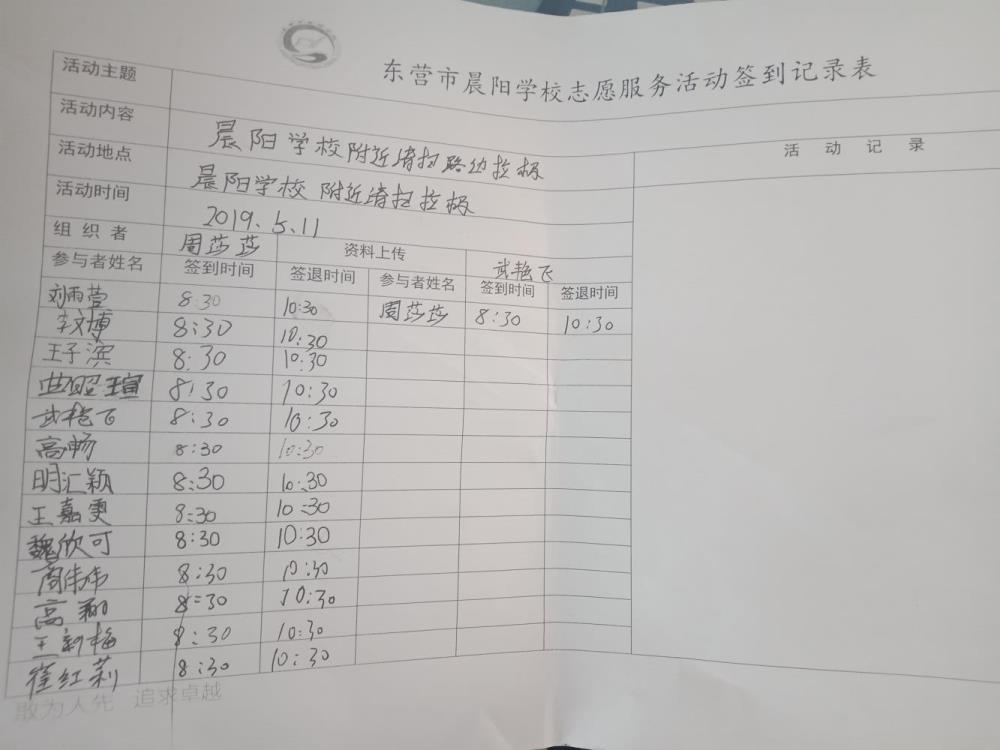 东营市晨阳学校志愿服务活动签到记录表
活动主题
活动内容 晨阳学校附近清扫路边垃圾
活动地点 晨阳学校附近清扫垃圾
活动时间 2019.5.11
组织者 周莎莎 资料上传 武艳飞
活动记录
参与者姓名 签到时间 签退时间 参与者姓名 签到时间 签退时间
刘雨萱 8:30 10:30 周莎莎 8:30 10:30
李文博 8:30 10:30
王子滨 8:30 10:30
曲昭瑄 8:30 10:30
武艳飞 8:30 10:30
高畅 8:30 10:30
明汇颖 8:30 10:30
王嘉雯 8:30 10:30
魏欣可 8:30 10:30
周伟伟 8:30 10:30
高翔 8:30 10:30
王新梅 8:30 10:30
崔红莉 8:30 10:30
敢为人先 追求卓越